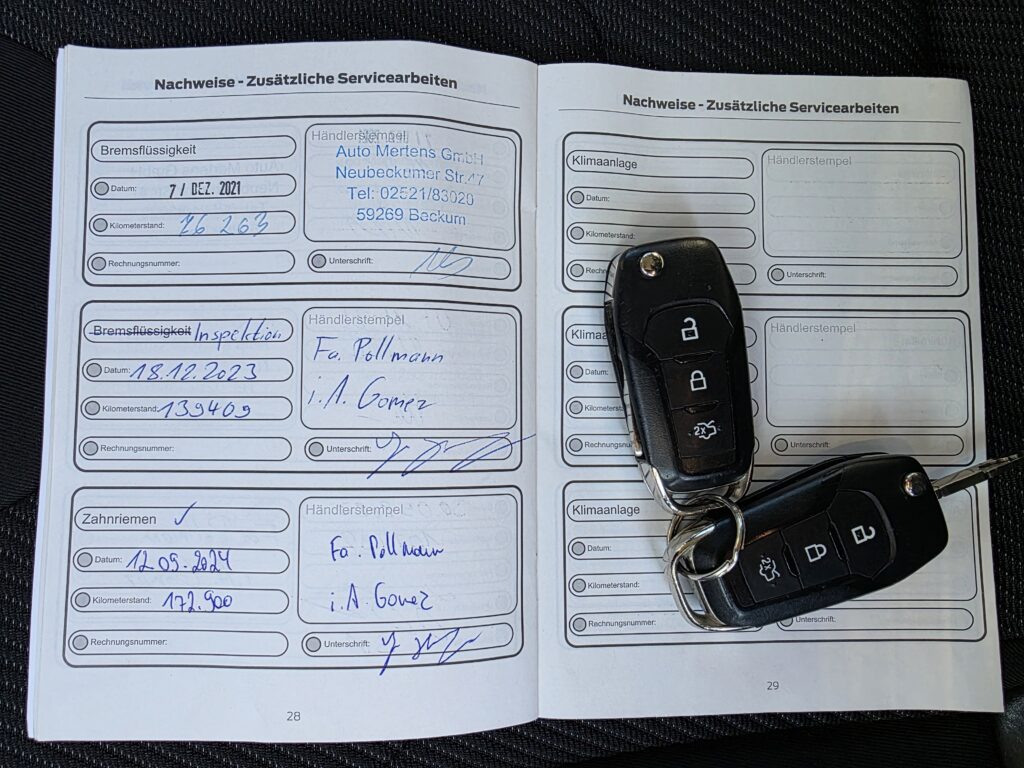 Nachweise - Zusätzliche Servicearbeiten
Bremsflüssigkeit
Datum: 7/ DEZ. 2021
Kilometerstand: 76 263
Rechnungsnummer:
Händlerstempel
Auto Mertens GmbH
Neubeckumer Str.47
Tel: 02521/83020
59269 Beckum
Unterschrift:
Bremsflüssigkeit Inspektion
Datum: 18.12.2023
Kilometerstand: 139409
Rechnungsnummer:
Händlerstempel
Fa. Pollmann
i.A. Gomez
Unterschrift:
Zahnriemen ✓
Datum: 12.09.2024
Kilometerstand: 172.900
Rechnungsnummer:
Händlerstempel
Fa. Pollmann
i.A. Gomez
Unterschrift:
28
Nachweise - Zusätzliche Servicearbeiten
Klimaanlage
Datum:
Kilometerstand:
Rechn
Händlerstempel
Unterschrift:
Klimaa
Datum:
Kilometerst
Rechnungsnu
2x
Händlerstempel
Unterschrift:
Klimaanlage
Datum:
Kilometerstand:
Rechnungsnummer:
Händlerstempel
Unterschrift:
2x
29